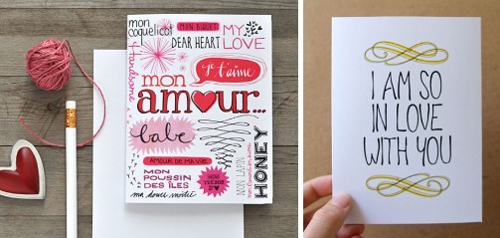 mon coquelicot
MON BIQUET
DEAR HEART
MY LOVE
Handsome
Je t'aime
mon
amour...
babe
AMOUR DE MA VIE
MON POUSSIN DES ÎLES
MON TRÉSOR
MON LAPIN
HONEY
ma douce moitié
I AM SO
IN LOVE
WITH YOU